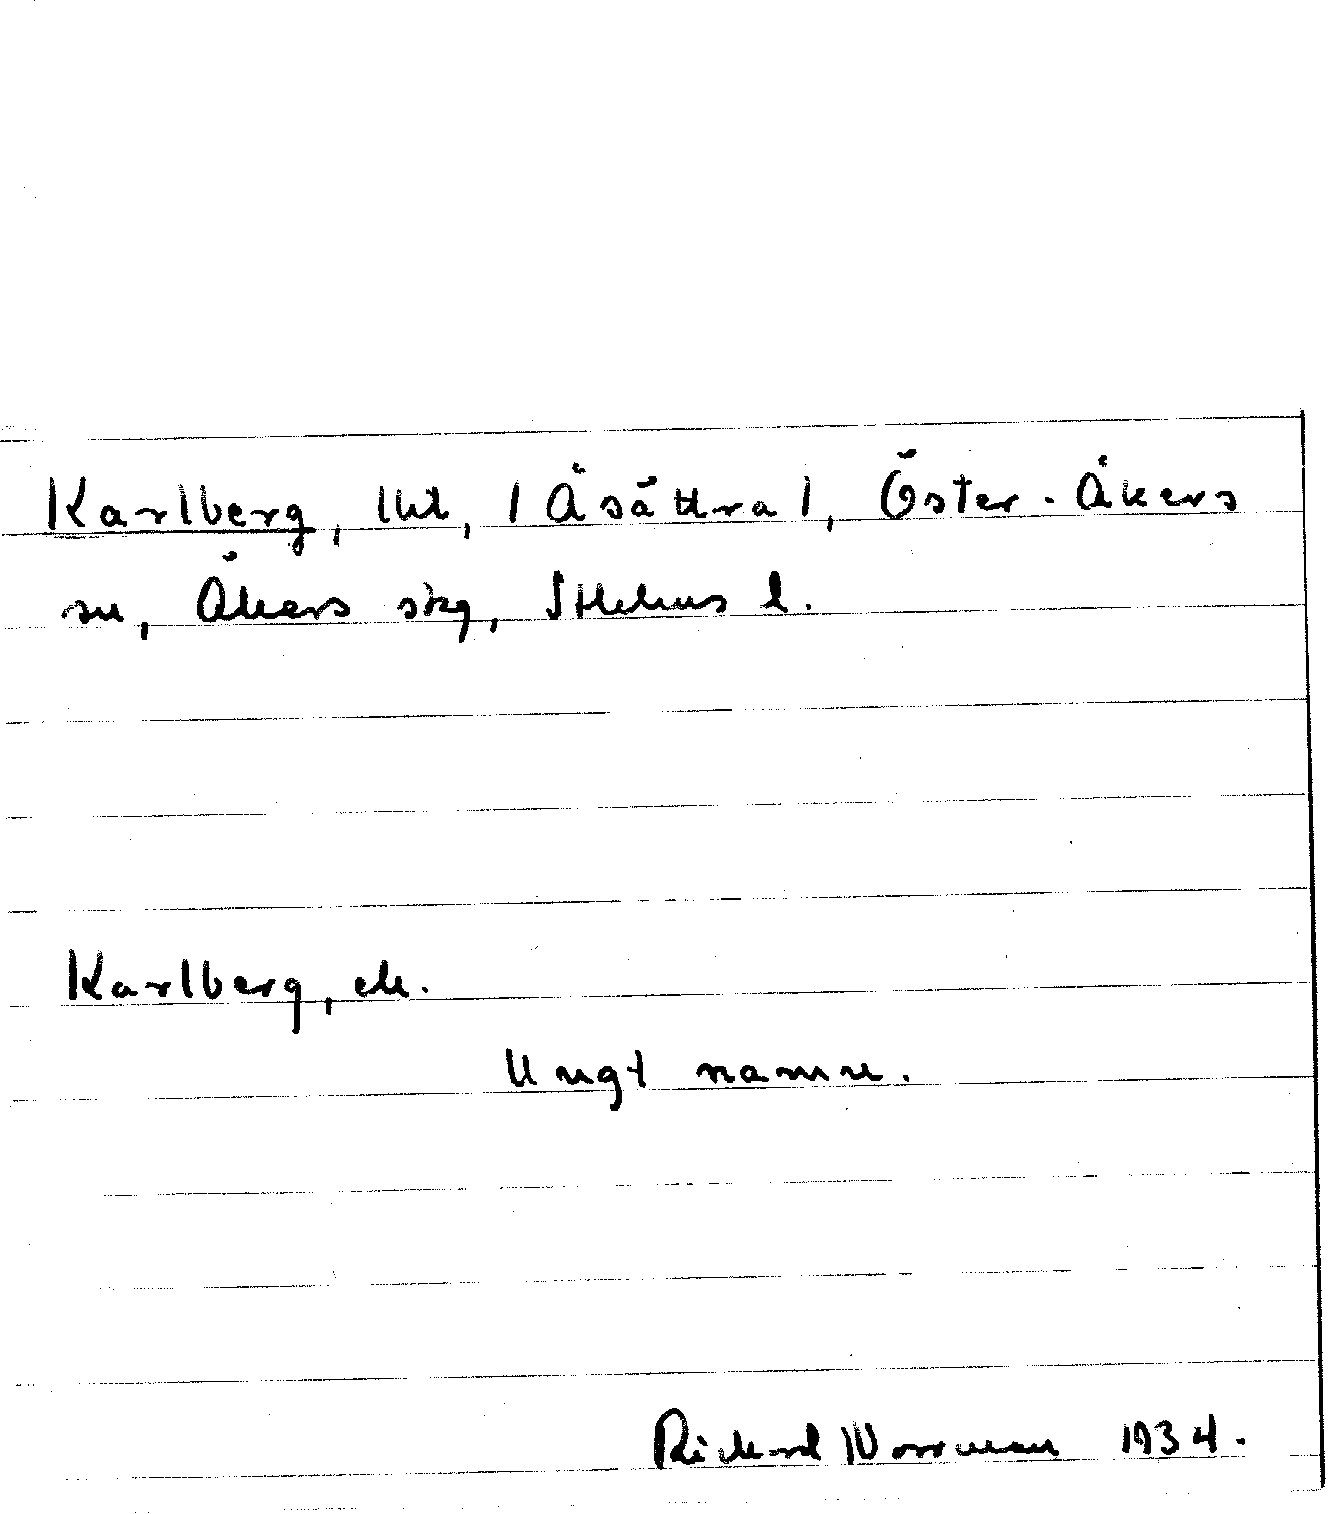 Karlberg, lht, (Åsättra), Öster-Åkers
sn, Åkers skg, Sthlms l.
Karlberg,
Ungt namn.
Rickard Norrman 1934.